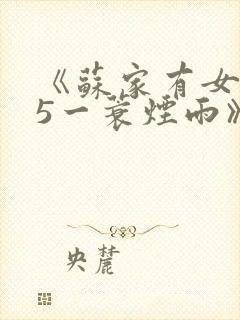 《蘇家有女
5一蓑煙雨》
央麓